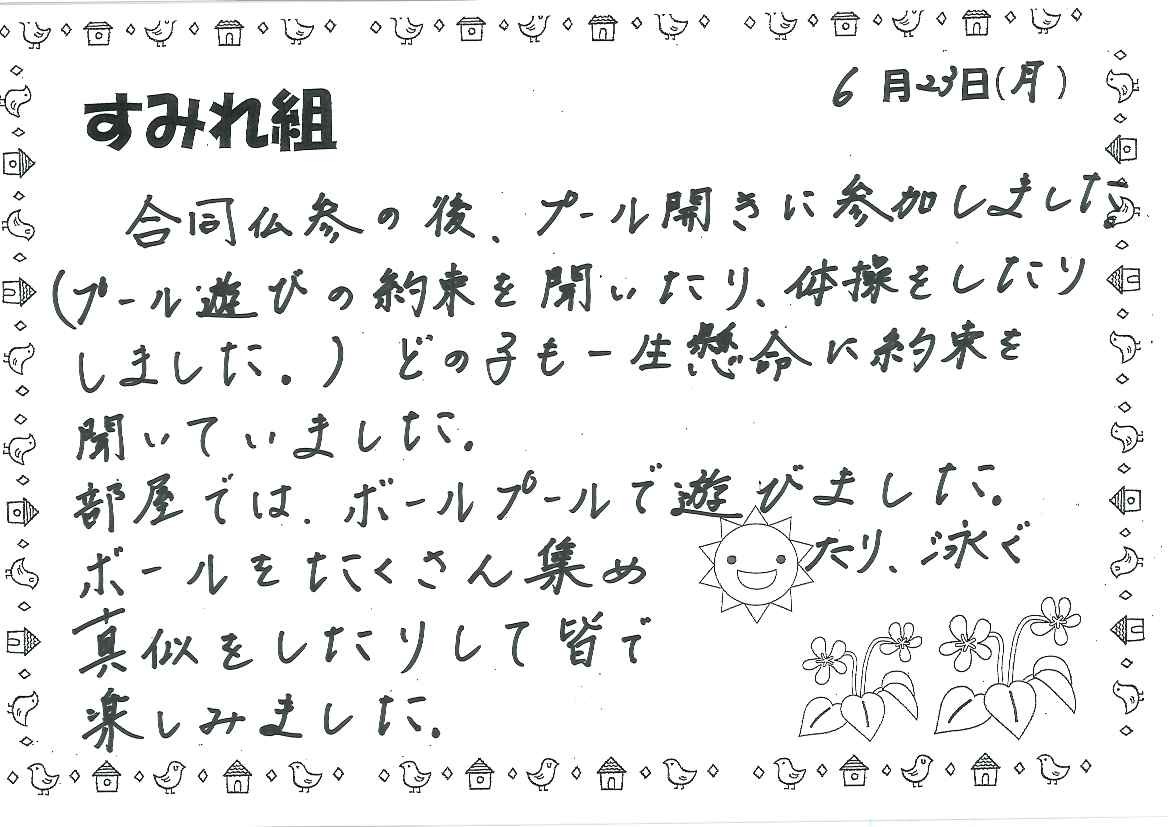 6月23日(月)
すみれ組
合同仏参の後、プール開きに参加しました。
(プール遊びの約束を聞いたり、体操をしたり
しました。) どの子も一生懸命に約束を
聞いていました。
部屋では、ボールプールで遊びました。
ボールをたくさん集めたり、泳ぐ
真似をしたりして皆で
楽しみました。